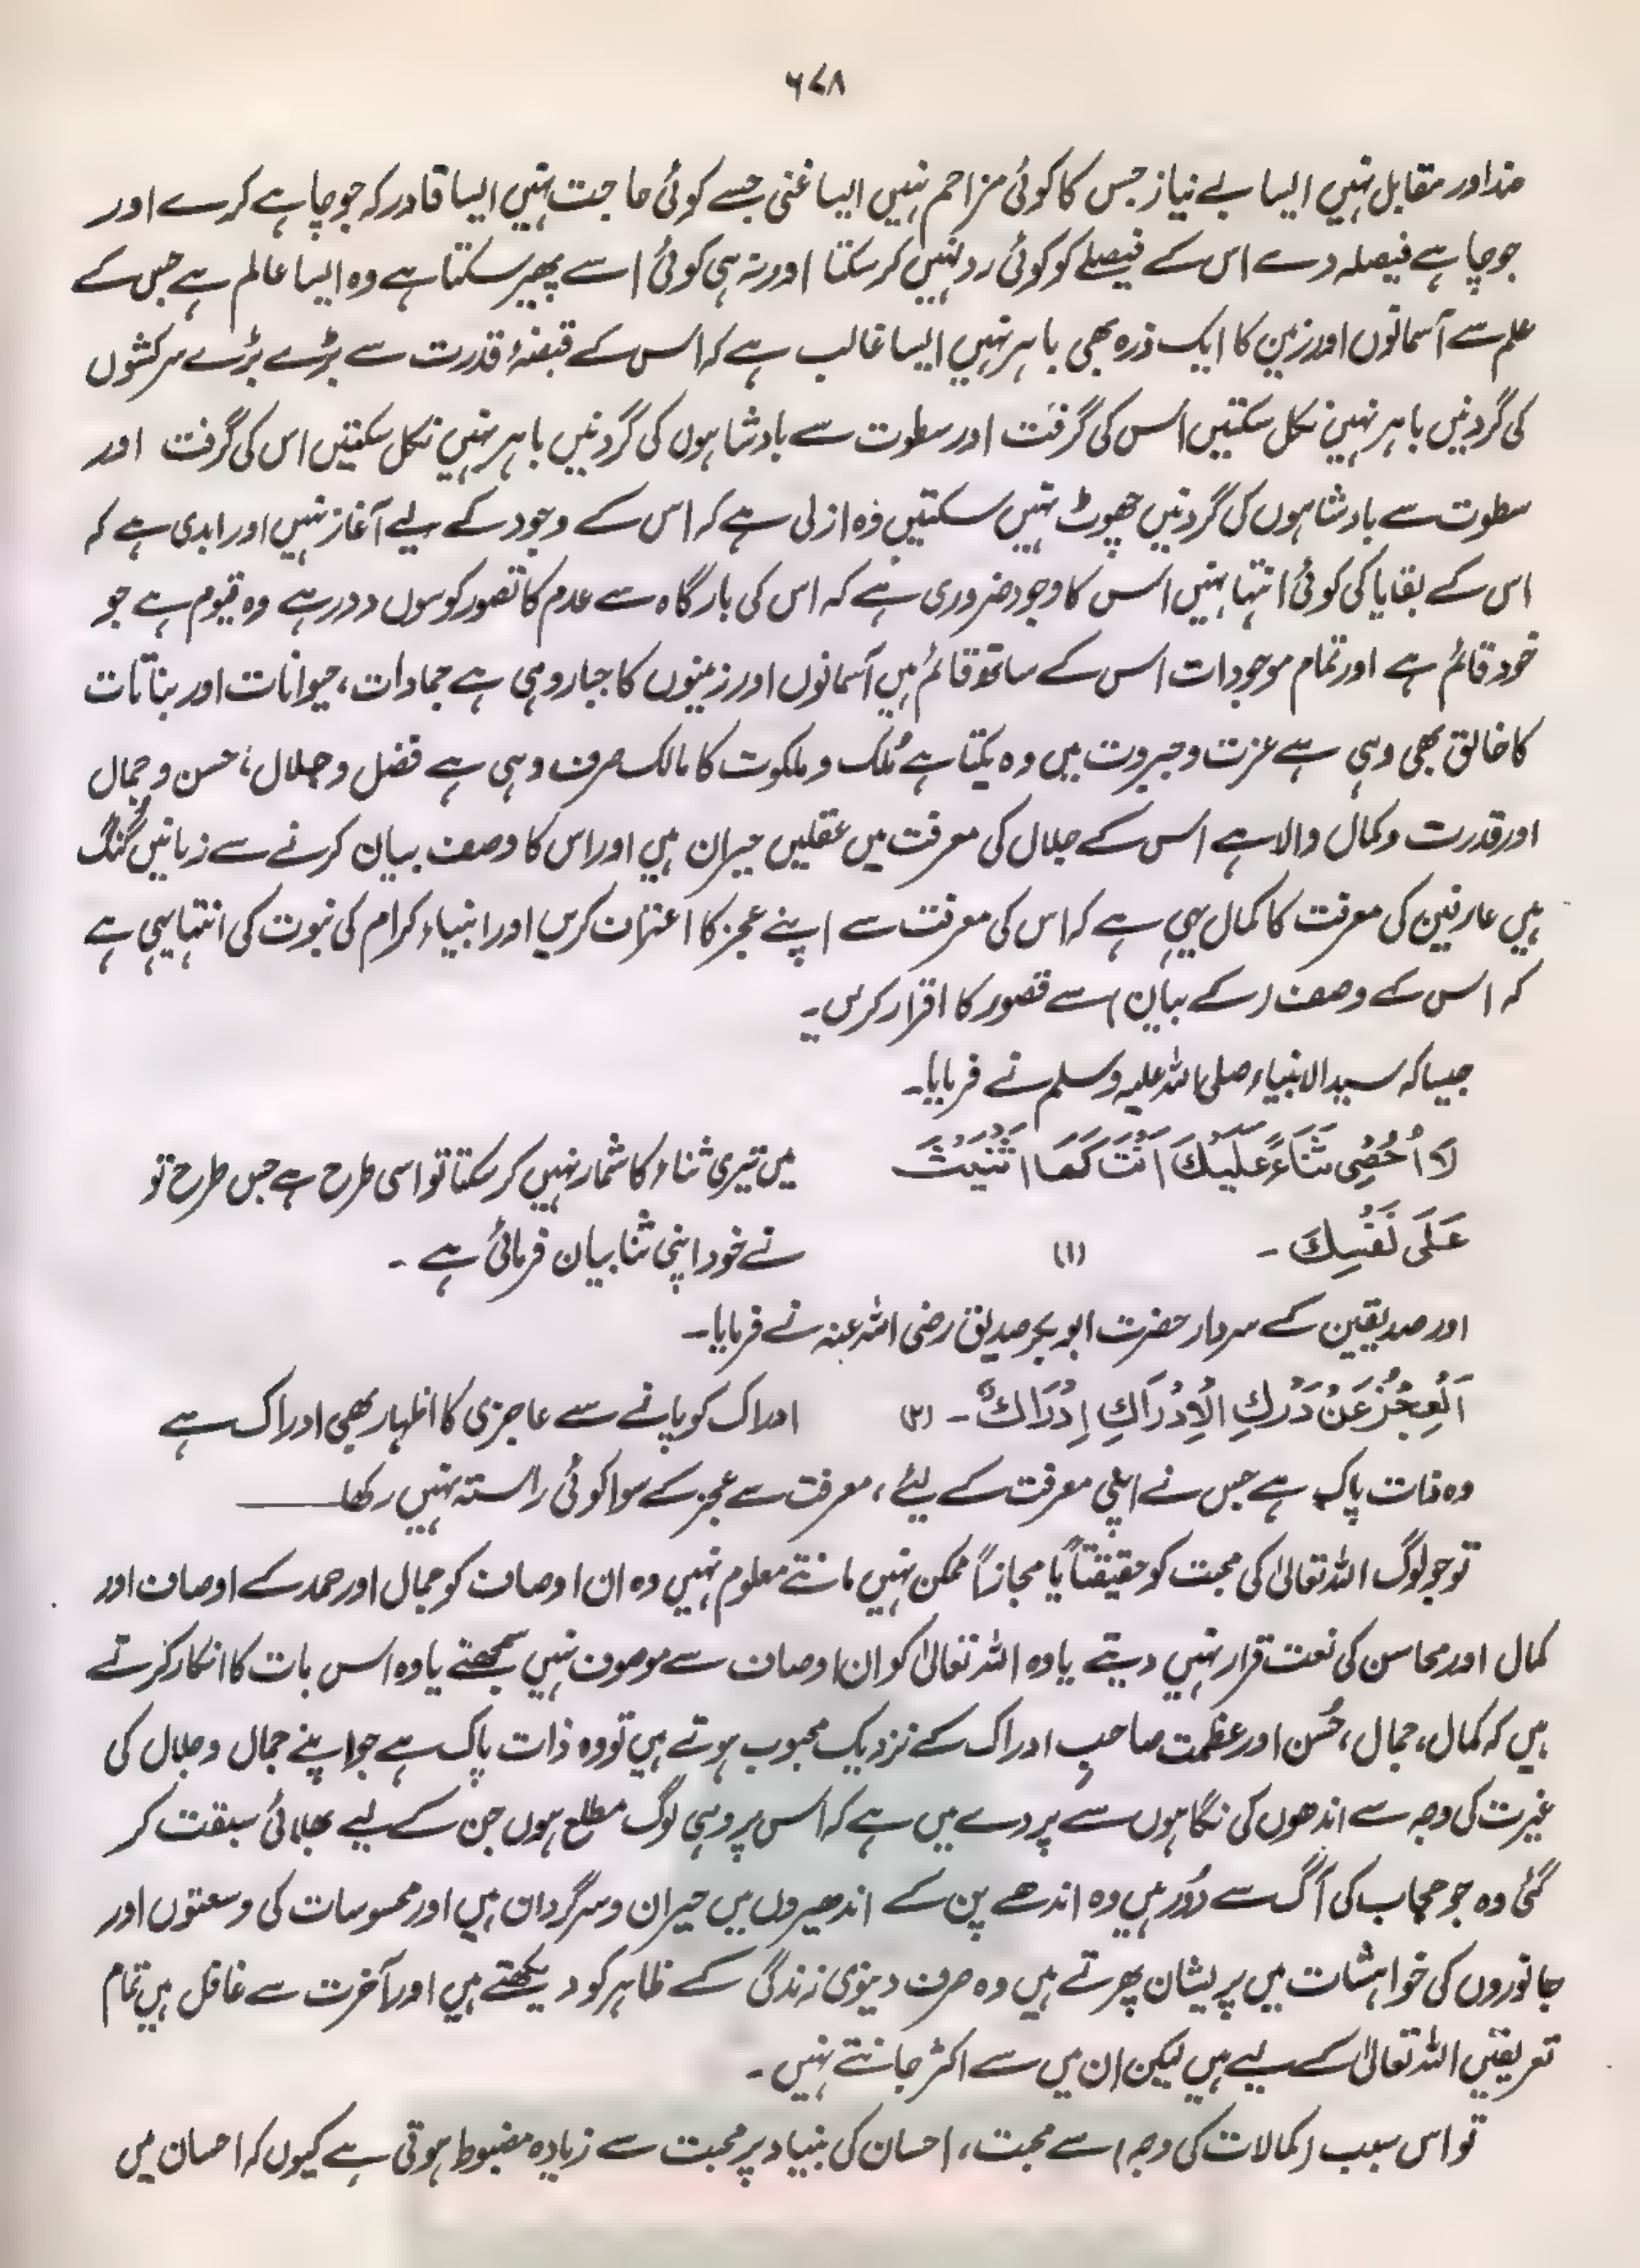 ۶۷۸
ضد اور مقابل نہیں ایسا بے نیاز جس کا کوئی مزاحم نہیں ایسا غنی جسے کوئی حاجت نہیں ایسا قادر کہ جو چاہے کرے اور
جو چاہے فیصلہ دے اس کے فیصلے کو کوئی رد نہیں کر سکتا اور نہ ہی کوئی اسے پھیر سکتا ہے وہ ایسا عالم ہے جس کے
علم سے آسمانوں اور زمین کا ایک ذرہ بھی باہر نہیں ایسا غالب ہے کہ اس کے قبضۂ قدرت سے بڑے بڑے سرکشوں
کی گردنیں باہر نہیں نکل سکتیں اس کی گرفت اور سطوت سے بادشاہوں کی گردنیں باہر نہیں نکل سکتیں اس کی گرفت اور
سطوت سے بادشاہوں کی گردنیں چھوٹ نہیں سکتیں وہ ازلی ہے کہ اس کے وجود کے لیے آغاز نہیں اور ابدی ہے کہ
اس کے بقایا کی کوئی انتہا نہیں اس کا وجود ضروری ہے کہ اس کی بارگاہ سے عدم کا تصور کوسوں دور ہے وہ قیوم ہے جو
خود قائم ہے اور تمام موجودات اس کے ساتھ قائم ہیں آسمانوں اور زمینوں کا جبار وہی ہے جمادات، حیوانات اور بناتات
کا خالق بھی وہی ہے عزت و جبروت میں وہ یکتا ہے مُلک و ملکوت کا مالک صرف وہی ہے فضل و جلال، حسن و جمال
اور قدرت و کمال والا ہے اس کے جلال کی معرفت میں عقلیں حیران ہیں اور اس کا وصف بیان کرنے سے زبانیں گنگ
ہیں عارفین کی معرفت کا کمال یہی ہے کہ اس کی معرفت سے اپنے عجز کا اعتراف کریں اور انبیاء کرام کی نبوت کی انتہا یہی ہے
کہ اس کے وصف (کے بیان) سے قصور کا اقرار کریں۔
جیسا کہ سید الانبیاء صلی اللہ علیہ وسلم نے فرمایا۔
لَا اُحْصِی ثَنَاءً عَلَیْكَ اَنْتَ كَمَا اَثْنَیْتَ میں تیری ثناء کا شمار نہیں کر سکتا تو اسی طرح ہے جس طرح تو
عَلَی نَفْسِكَ - (۱) نے خود اپنی ثنا بیان فرمائی ہے -
اور صدیقین کے سردار حضرت ابوبکر صدیق رضی اللہ عنہ نے فرمایا۔
اَلْعِجْزُ عَنْ دَرْكِ الْاِدْرَاكِ اِدْرَاكٌ - (۲) ادراک کو پانے سے عاجزی کا اظہار بھی ادراک ہے
وہ ذات پاک ہے جس نے اپنی معرفت کے لئے، معرفت سے عجز کے سوا کوئی راستہ نہیں رکھا۔
تو جو لوگ اللہ تعالیٰ کی محبت کو حقیقتاً یا مجازاً ممکن نہیں مانتے معلوم نہیں وہ ان اوصاف کو جمال اور حمد کے اوصاف اور
کمال اور محاسن کی نعت قرار نہیں دیتے یا وہ اللہ تعالیٰ کو ان اوصاف سے موصوف نہیں سمجھتے یا وہ اس بات کا انکار کرتے
ہیں کہ کمال، جمال، حُسن اور عظمت صاحبِ ادراک کے نزدیک محبوب ہوتے ہیں تو وہ ذات پاک ہے جو اپنے جمال و جلال کی
غیرت کی وجہ سے اندھوں کی نگاہوں سے پردے میں ہے کہ اس پر وہی لوگ مطلع ہوں جن کے لیے بھلائی سبقت کر
گئی وہ جو حجاب کی آگ سے دُور ہیں وہ اندھے پن کے اندھیروں میں حیران و سرگردان ہیں اور محسوسات کی وسعتوں اور
جانوروں کی خواہشات میں پریشان پھرتے ہیں وہ صرف دینوی زندگی کے ظاہر کو دیکھتے ہیں اور آخرت سے غافل ہیں تمام
تعریفیں اللہ تعالیٰ کے لیے ہیں لیکن ان میں سے اکثر جانتے نہیں -
تو اس سبب (کمالات کی وجہ) سے محبت، احسان کی بنیاد پر محبت سے زیادہ مضبوط ہوتی ہے کیوں کہ احسان میں